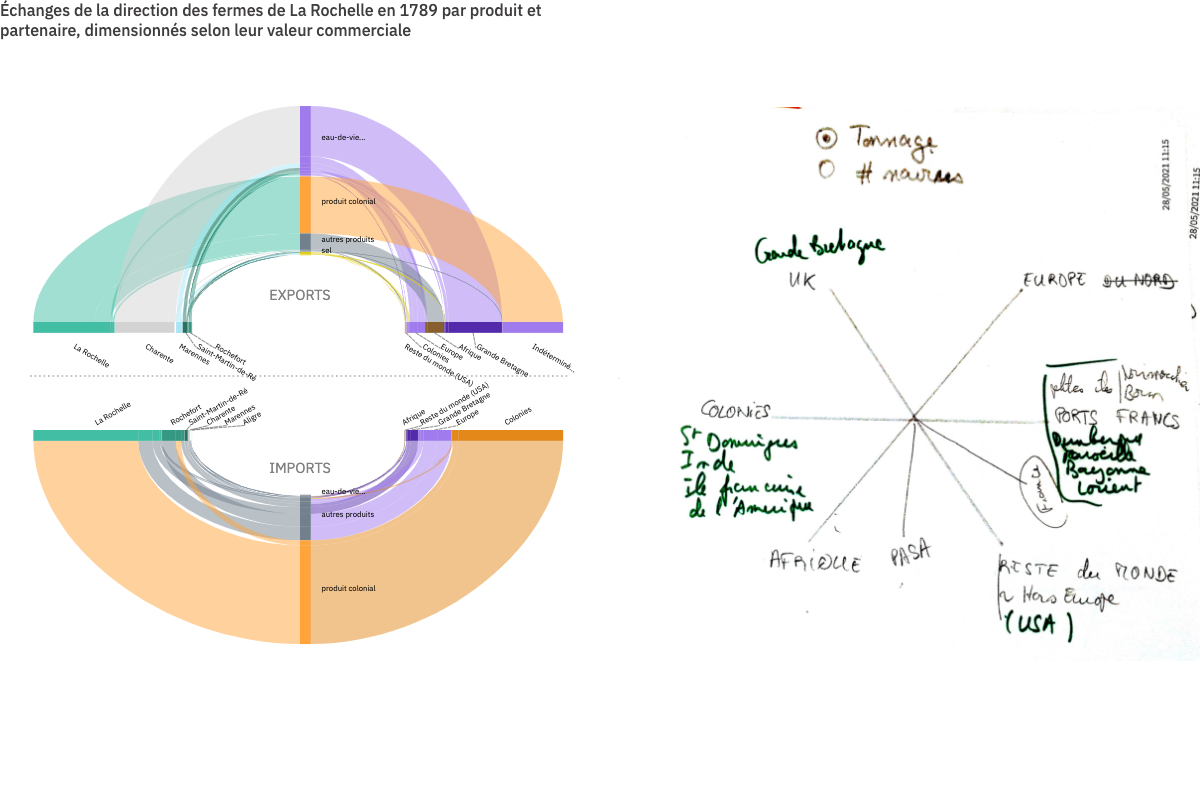 Échanges de la direction des fermes de La Rochelle en 1789 par produit et
partenaire, dimensionnés selon leur valeur commerciale
eau-de-vie...
produit colonial
autres produits
sel
EXPORTS
La Rochelle
Charente
Marennes
Saint-Martin-de-Ré
Rochefort
Reste du monde (USA)
Colonies
Europe
Afrique
Grande Bretagne
Indéterminé...
La Rochelle
Rochefort
Saint-Martin-de-Ré
Charente
Marennes
Aligre
Afrique
Reste du monde (USA)
Grande Bretagne
Europe
Colonies
IMPORTS
eau-de-vie...
autres produits
produit colonial
Tonnage
# navires
28/05/2021 11:15
28/05/2021 11:15
Grande Bretagne
UK
EUROPE DU NORD
COLONIES
St Domingues
Inde
île française
de l'Amérique
petites îles
PORTS FRANCS
Dunkerque
Marseille
Bayonne
Lorient
France
AFRIQUE
PASA
RESTE du MONDE
Hors Europe
(USA)